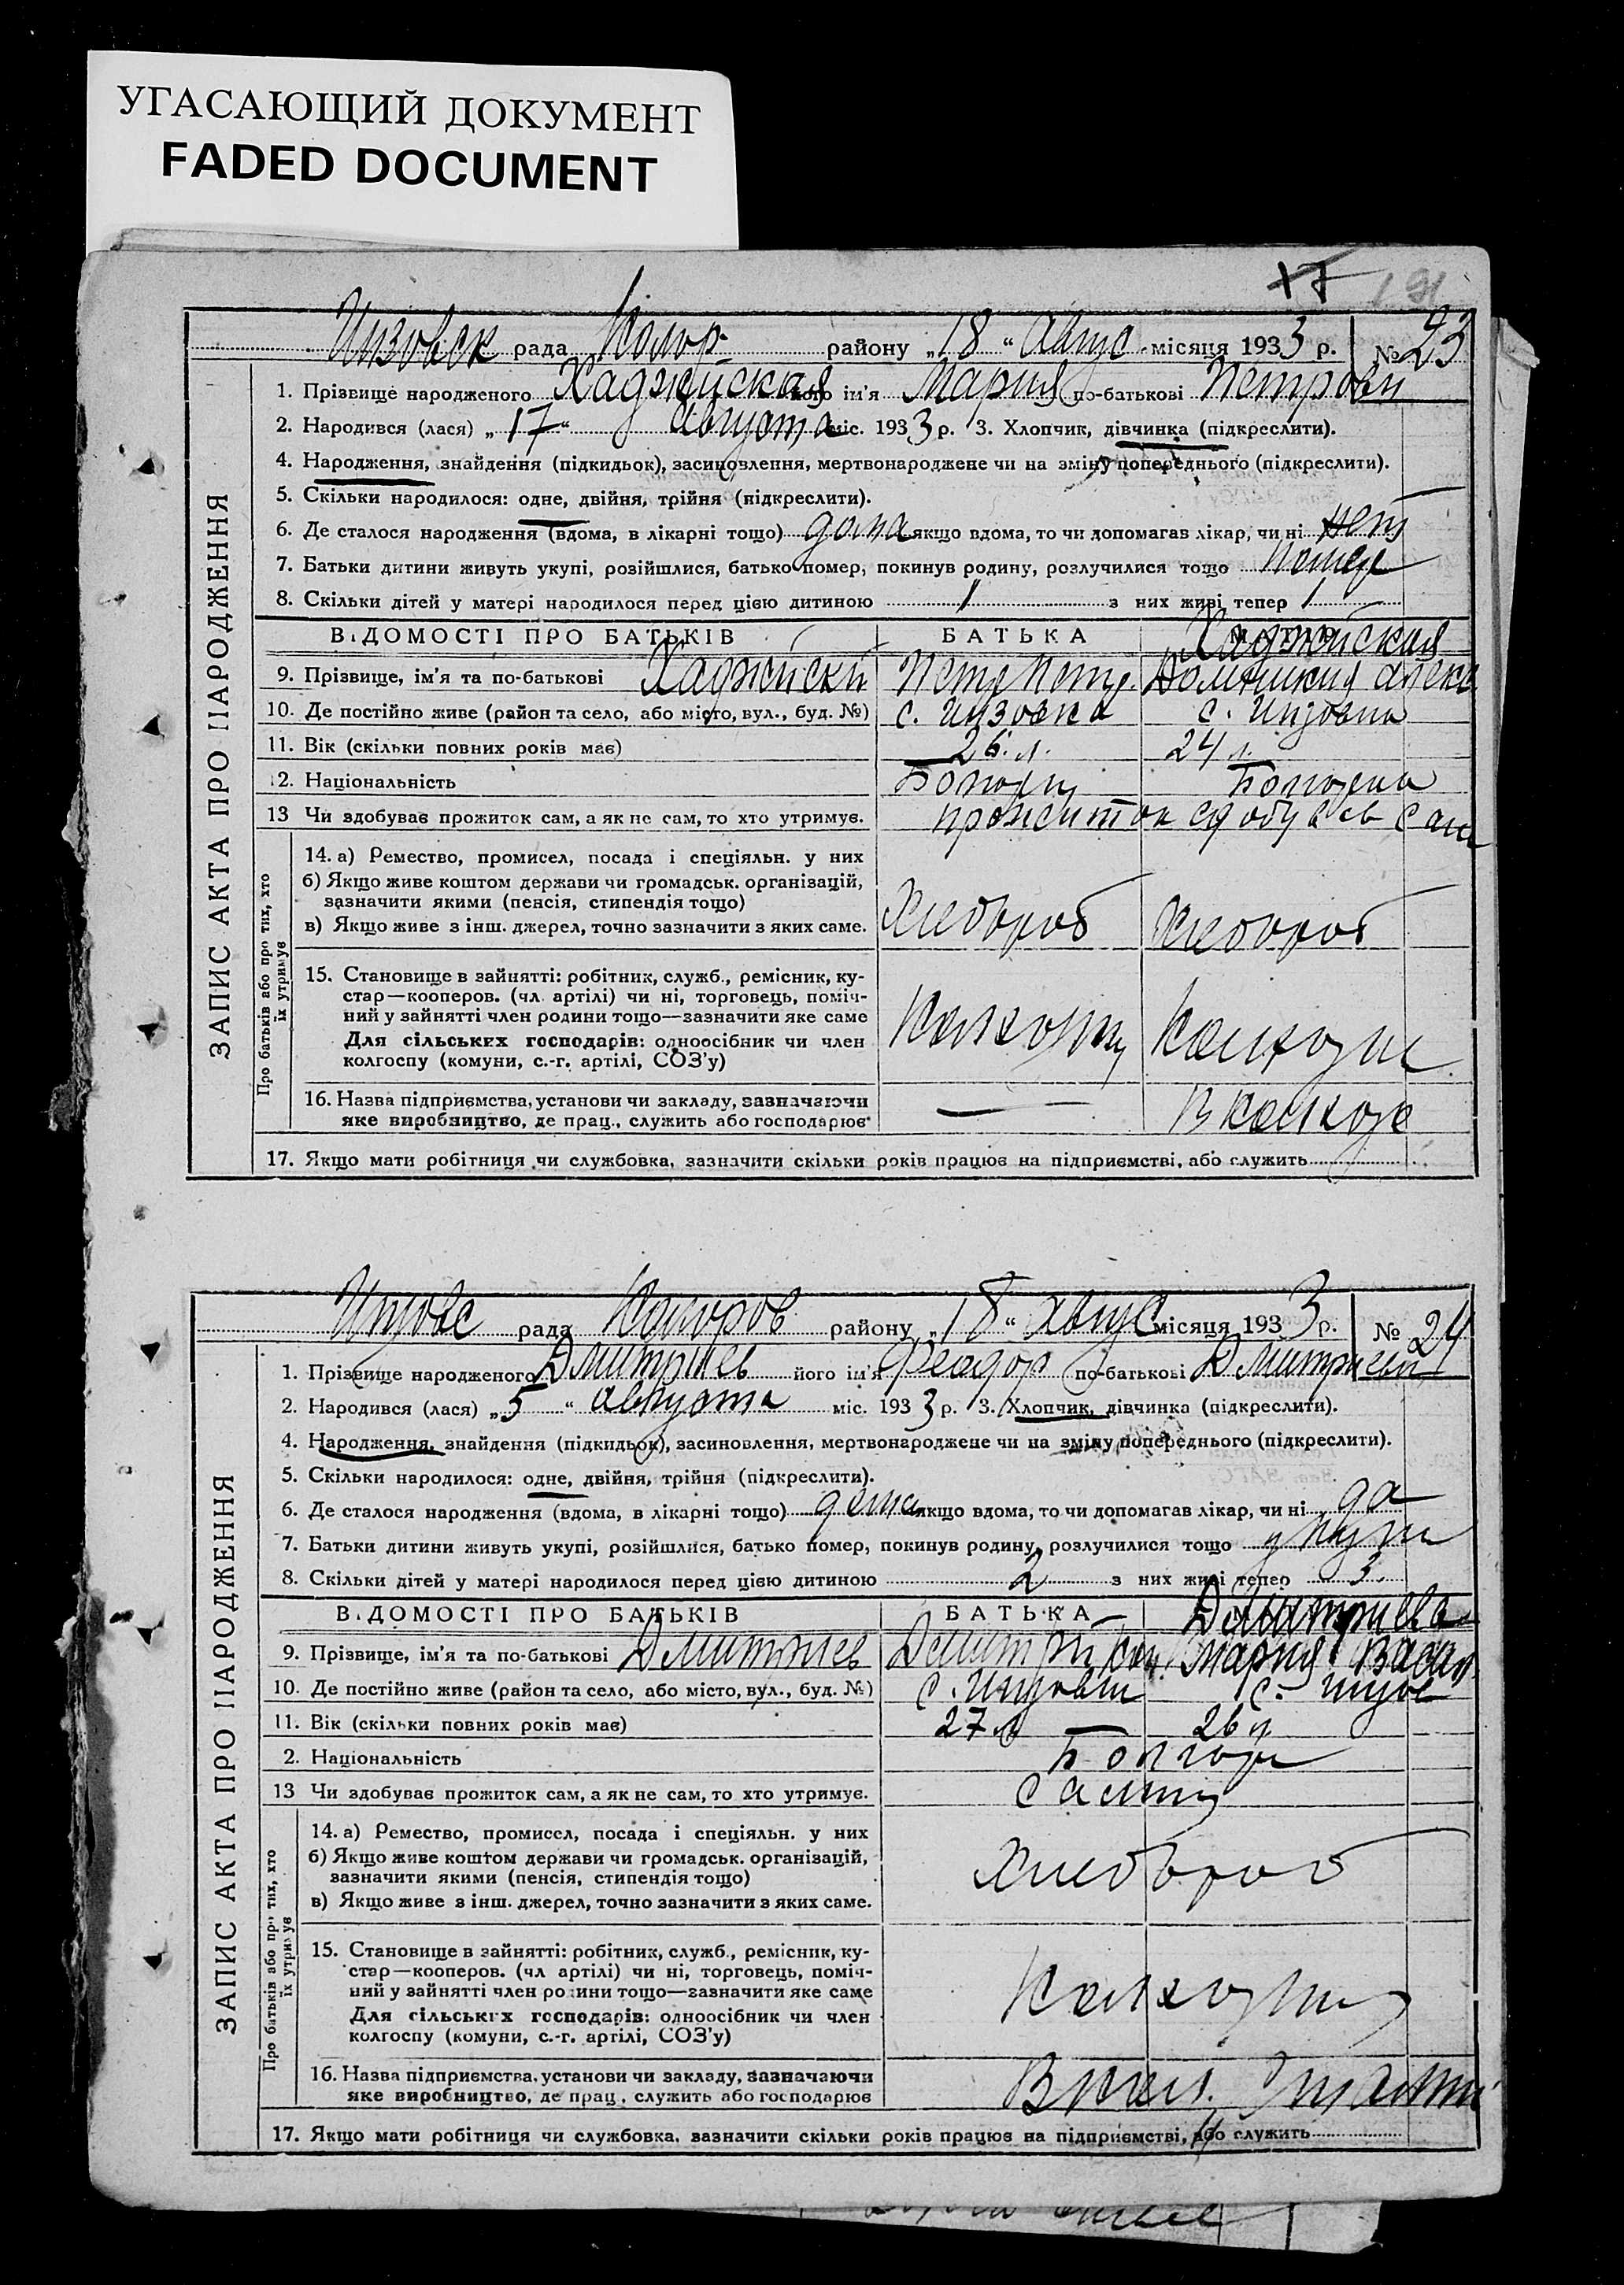 УГАСАЮЩИЙ ДОКУМЕНТ
FADED DOCUMENT
17 191
Инзовск рада Колор. району „18“ Авгус. місяця 1933 р. № 23
1. Прізвище народженого Хаджийская його ім'я Мария по-батькові Петровн
2. Народився (лася) „17“ Августа міс. 1933 р. 3. Хлопчик, дівчинка (підкреслити).
4. Народження, знайдення (підкидьок), засиновлення, мертвонароджене чи на зміну попереднього (підкреслити).
5. Скільки народилося: одне, двійня, трійня (підкреслити).
6. Де сталося народження (вдома, в лікарні тощо) дома якщо вдома, то чи допомагав лікар, чи ні нет
7. Батьки дитини живуть укупі, розійшлися, батько помер, покинув родину, розлучилися тощо
8. Скільки дітей у матері народилося перед цією дитиною 1 з них живі тепер 1
ВІДОМОСТІ ПРО БАТЬКІВ БАТЬКА Хаджийская
9. Прізвище, ім'я та по-батькові Хаджийский Петр Петр. Домникия Алекс
10. Де постійно живе (район та село, або місто, вул., буд. №) с. Инзовка с. Инзовка
11. Вік (скільки повних років має) 26 л. 24 л.
12. Національність Болгари Болгарка
13 Чи здобуває прожиток сам, а як не сам, то хто утримує. прожиток здобував сам
14. а) Ремество, промисел, посада і спеціяльн. у них
б) Якщо живе коштом держави чи громадськ. організацій,
зазначити якими (пенсія, стипендія тощо)
в) Якщо живе з інш. джерел, точно зазначити з яких саме. Хлебороб Хлебороб
15. Становище в зайнятті: робітник, служб., ремісник, ку-
стар—кооперов. (чл. артілі) чи ні, торговець, поміч-
ний у зайнятті член родини тощо—зазначити яке саме
Для сільських господарів: одноосібник чи член
колгоспу (комуни, с.-г. артілі, СОЗ'у)
16. Назва підприємства, установи чи закладу, зазначаючи
яке виробництво, де прац., служить або господарює — В колхозе
17. Якщо мати робітниця чи службовка, зазначити скільки років працює на підприємстві, або служить
ЗАПИС АКТА ПРО НАРОДЖЕННЯ
Про батьків або про тих, хто
їх утримує
рада району „18“ Авгус місяця 1933 р. № 24
1. Прізвище народженого Дмитриев його ім'я Феодор по-батькові Дмитриевич
2. Народився (лася) „5“ Августа міс. 1933 р. 3. Хлопчик, дівчинка (підкреслити).
4. Народження, знайдення (підкидьок), засиновлення, мертвонароджене чи на зміну попереднього (підкреслити).
5. Скільки народилося: одне, двійня, трійня (підкреслити).
6. Де сталося народження (вдома, в лікарні тощо) дома якщо вдома, то чи допомагав лікар, чи ні да
7. Батьки дитини живуть укупі, розійшлися, батько помер, покинув родину, розлучилися тощо
8. Скільки дітей у матері народилося перед цією дитиною 2 з них живі тепер 3.
ВІДОМОСТІ ПРО БАТЬКІВ БАТЬКА Дмитриева
9. Прізвище, ім'я та по-батькові Дмитриев Дмитрий Мария Васил
10. Де постійно живе (район та село, або місто, вул., буд. №)
11. Вік (скільки повних років має) 27 л — 26 л
2. Національність Болгары
13 Чи здобуває прожиток сам, а як не сам, то хто утримує.
14. а) Ремество, промисел, посада і спеціяльн. у них
б) Якщо живе коштом держави чи громадськ. організацій,
зазначити якими (пенсія, стипендія тощо)
в) Якщо живе з інш. джерел, точно зазначити з яких саме. Хлебороб
15. Становище в зайнятті: робітник, служб., ремісник, ку-
стар—кооперов. (чл артілі) чи ні, торговець, поміч-
ний у зайнятті член родини тощо—зазначити яке саме
Для сільських господарів: одноосібник чи член
колгоспу (комуни, с.-г. артілі, СОЗ'у)
16. Назва підприємства, установи чи закладу, зазначаючи
яке виробництво, де прац., служить або господарює
17. Якщо мати робітниця чи службовка, зазначити скільки років працює на підприємстві, або служить
ЗАПИС АКТА ПРО НАРОДЖЕННЯ
Про батьків або про тих, хто
їх утримує